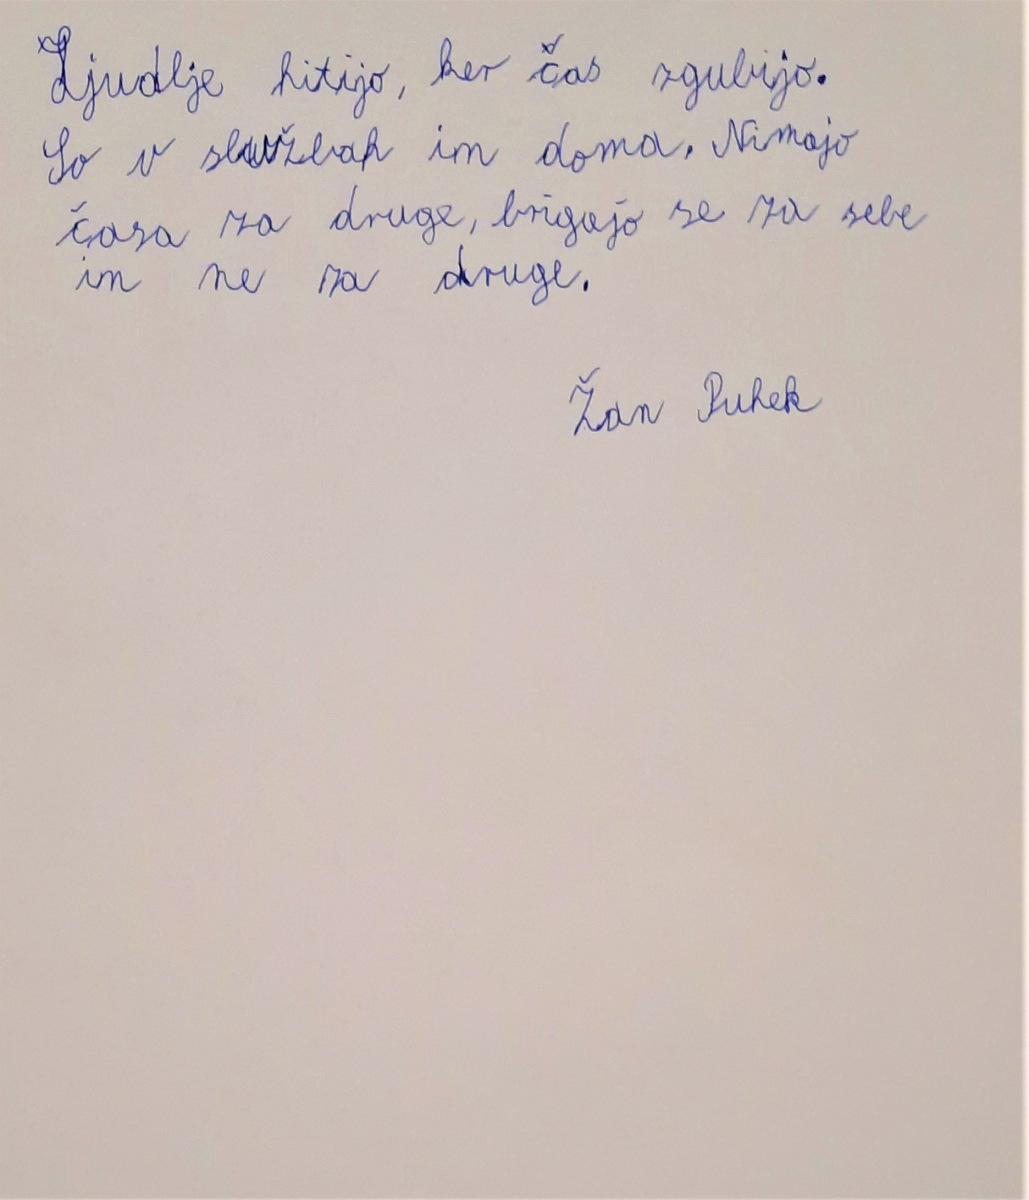 Ljudlje hitijo, ker čas zgubijo.
So v službah in doma. Nimajo
časa za druge, brigajo se za sebe
in ne za druge.
Žan Puhek